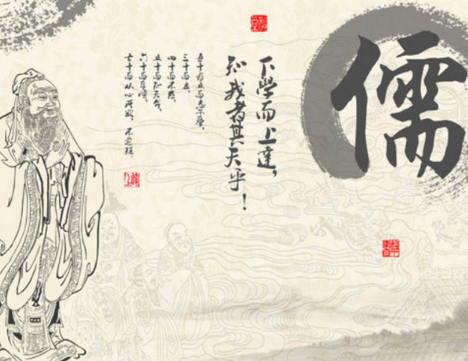 儒
下学而上達，
知我者其天乎！
吾十有五而志于学，
三十而立，
四十而不惑，
五十而知天命，
六十而耳顺，
七十而从心所欲，不逾矩